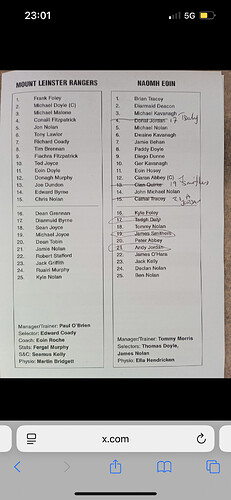 23:01
5G
MOUNT LEINSTER RANGERS
1. Frank Foley
2. Michael Doyle (C)
3. Michael Malone
4. Conaill Fitzpatrick
5. Jon Nolan
6. Tony Lawlor
7. Richard Coady
8. Tim Brennan
9. Fiachra Fitzpatrick
10. Ted Joyce
11. Eoin Doyle
12. Donagh Murphy
13. Joe Dundon
14. Edward Byrne
15. Chris Nolan
16. Dean Grennan
17. Diarmuid Byrne
18. Sean Joyce
19. Michael Joyce
20. Dean Tobin
21. Jamie Nolan
22. Robert Stafford
23. Jack Griffith
24. Ruairi Murphy
25. Kyle Nolan
Manager/Trainer: Paul O'Brien
Selector: Edward Coady
Coach: Eoin Roche
Stats: Fergal Murphy
S&C: Seamus Kelly
Physio: Martin Bridgett
NAOMH EOIN
1. Brian Tracey
2. Diarmaid Deacon
3. Michael Kavanagh
4. Donal Jordan 17 Daly
5. Michael Nolan
6. Deaine Kavanagh
7. Jamie Behan
8. Paddy Doyle
9. Diego Dunne
10. Ger Kavanagh
11. Eoin Hosey
12. Ciaran Abbey (C)
13. Cian Quirke 19 J Smithers
14. John Michael Nolan
15. Cathal Tracey 21 A Jordan
16. Kyle Foley
17. Tadgh Daly
18. Tommy Nolan
19. James Smithers
20. Peter Abbey
21. Andy Jordan
22. James O'Hara
23. Jack Kelly
24. Declan Nolan
25. Ben Nolan
Manager/Trainer: Tommy Morris
Selectors: Thomas Doyle,
James Nolan
Physio: Ella Hendricken
x.com